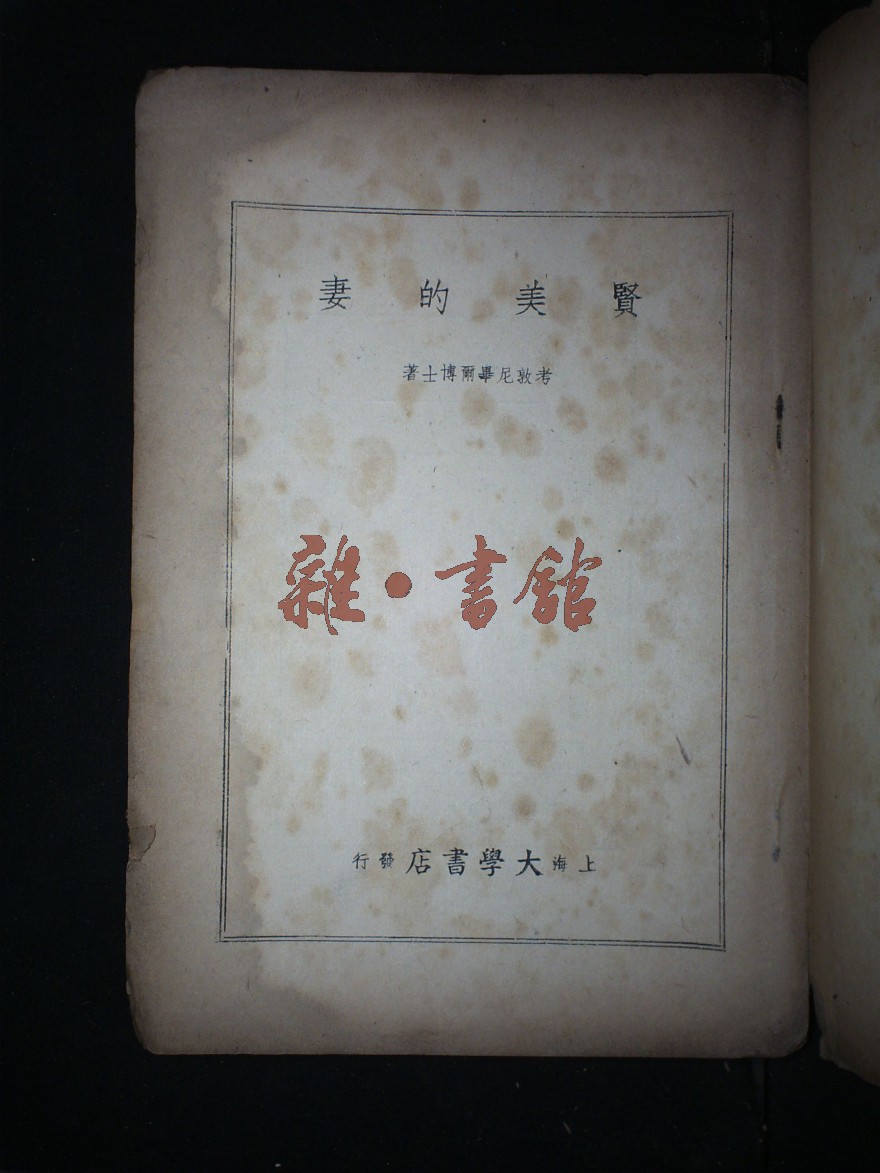 賢美的妻
考敦尼畢爾博士著
雜·書館
上海大學書店發行